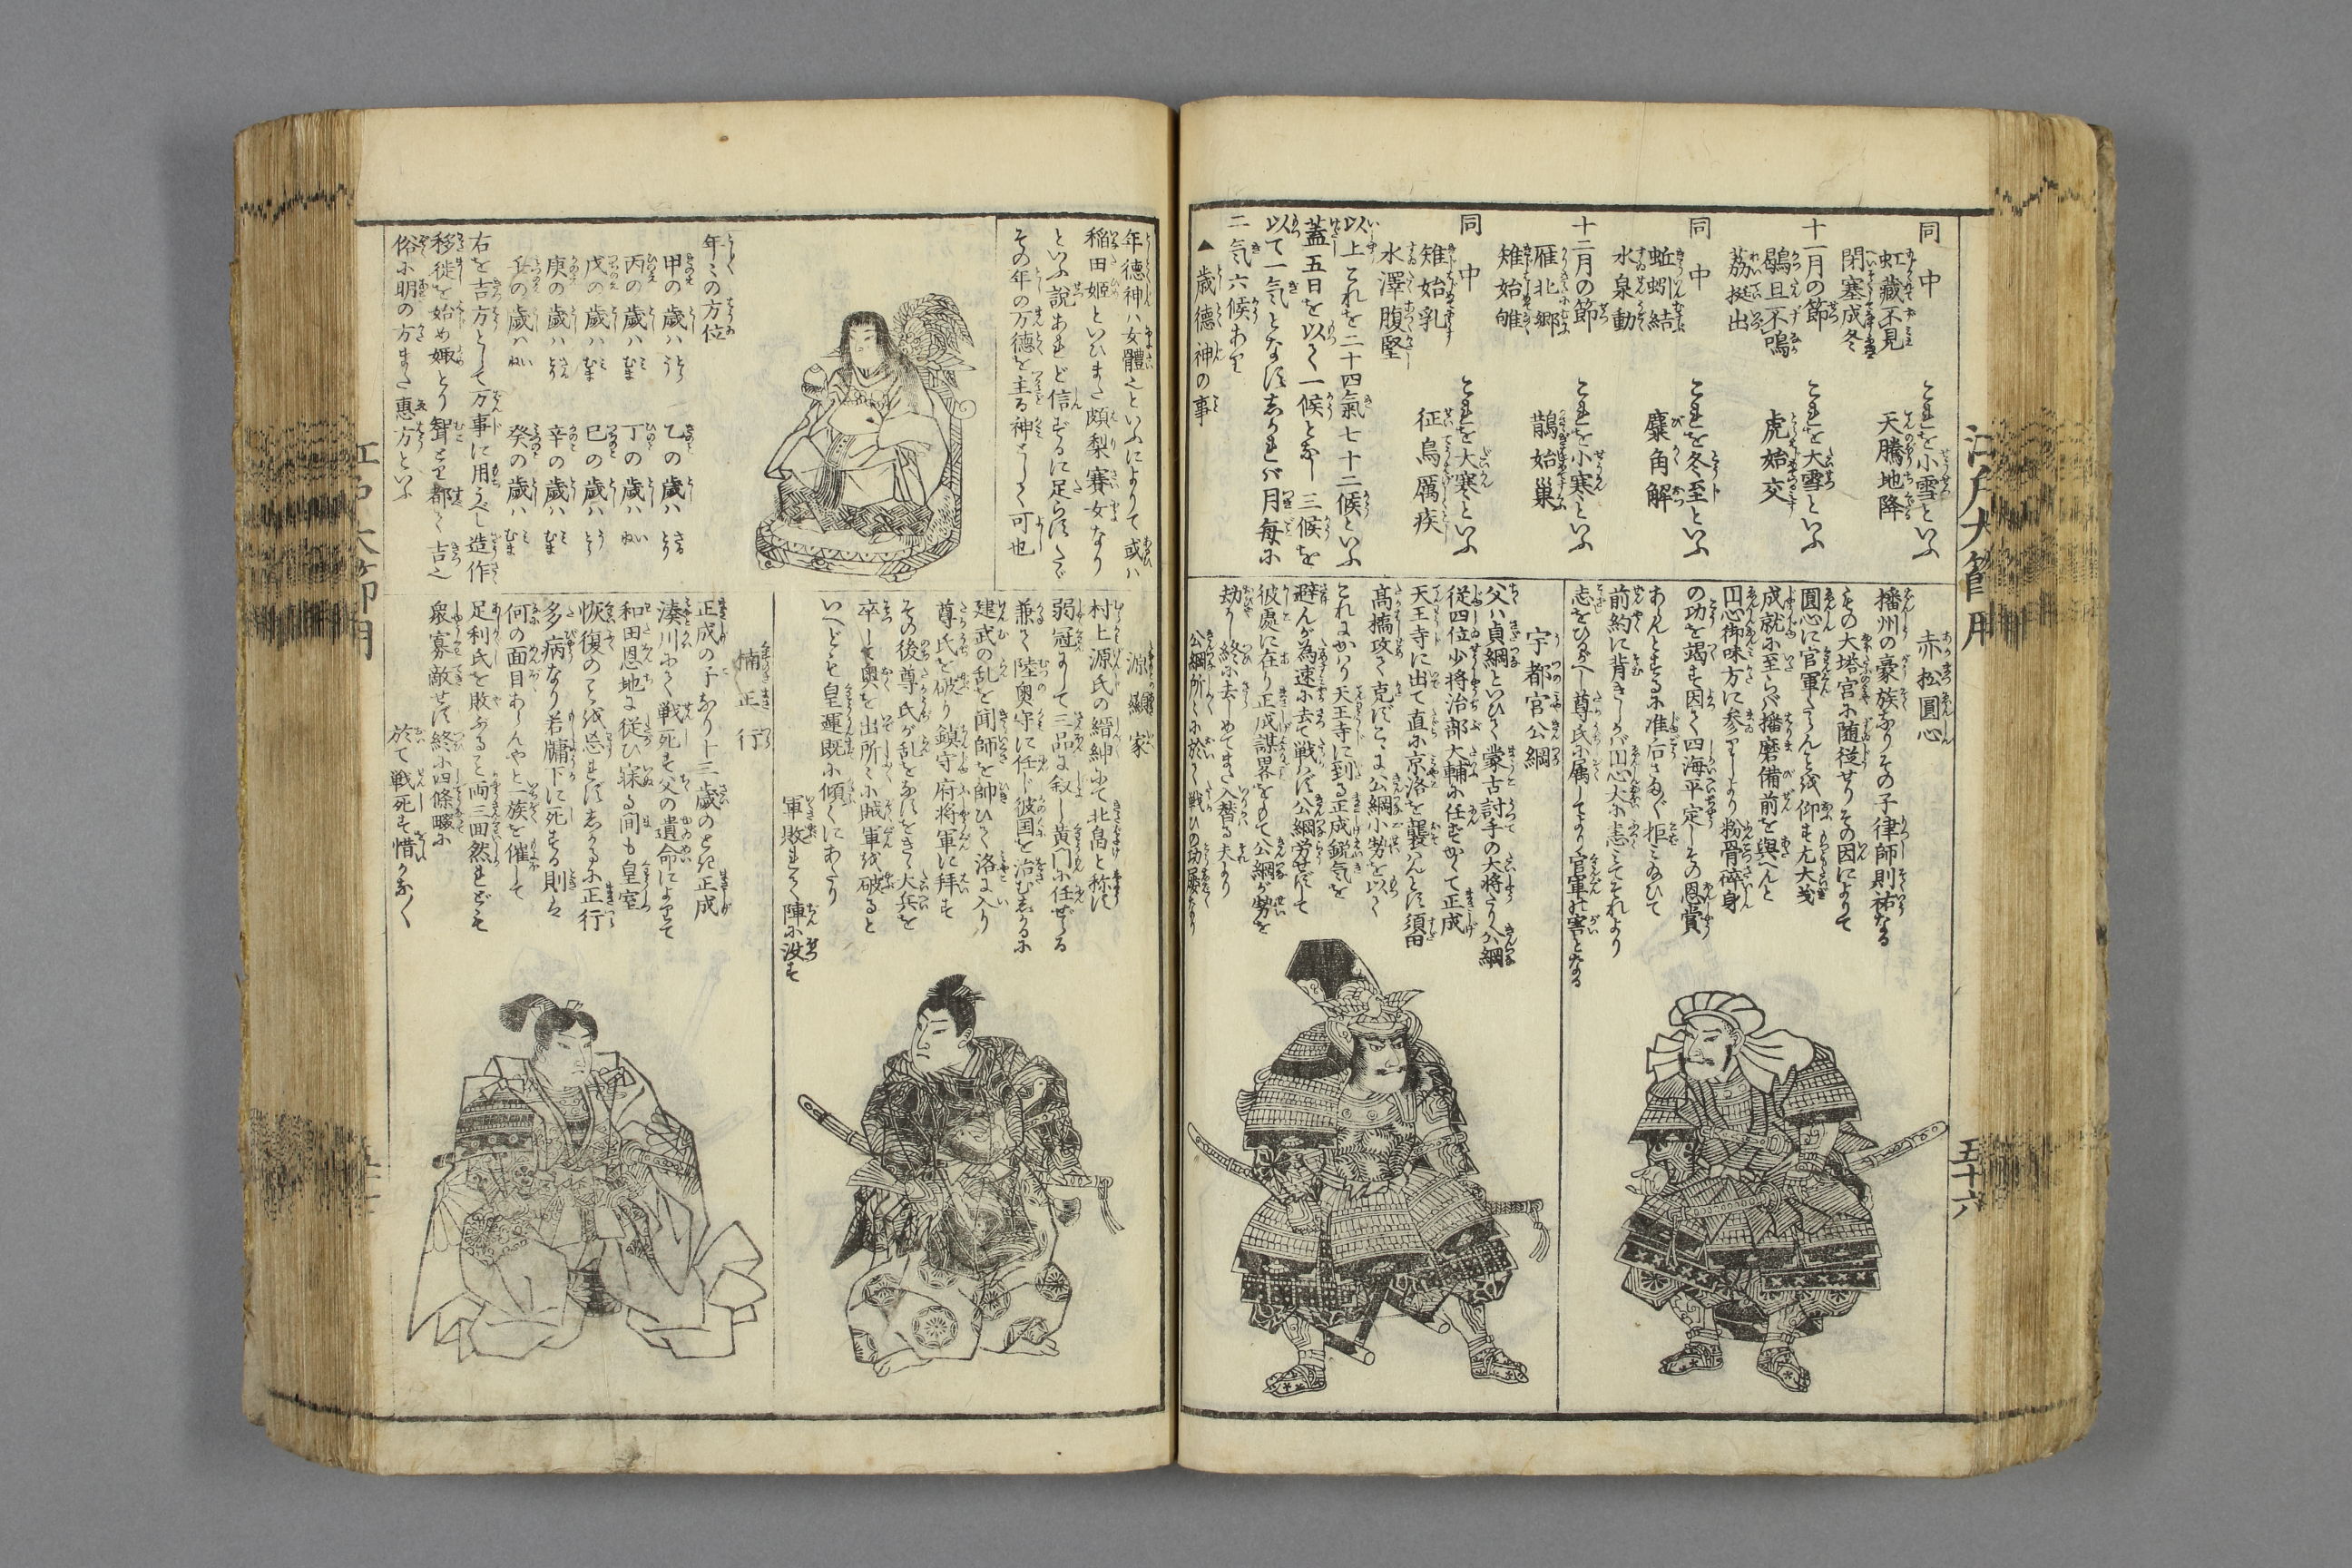 江戸大節用
五十六
同 中
虹藏不見
閉塞成冬
これを小雪といふ
天騰地降
十一月の節
鶡旦不鳴
茘挺出
これを大雪といふ
虎始交
同 中
蚯蚓結
水泉動
これを冬至といふ
麋角解
十二月の節
雁北郷
雉始雊
これを小寒といふ
鵲始巣
同 中
雉始乳
水澤腹堅
これを大寒といふ
征鳥厲疾
以上これを二十四氣七十二候といふ
蓋五日を以て一候となし三候を
以て一気となすしかれば月毎に
二気六候あり
▲歳德神の事
赤松圓心
播州の豪族なりその子律師則祐なる
もの大塔宮に随従せりその因によりて
圓心に官軍たらんを仰す尤大義
成就に至らば播磨備前を與へんと
円心御味方に参りしより粉骨碎身
の功を竭す因て四海平定しその恩賞
あらんとするに准后さゝぐ拒み
前約に背きしかば円心大に恚みてそれより
志をひるがへし尊氏に属してより官軍の害となる
宇都宮公綱
父ハ貞綱といひて蒙古討手の大将たり公綱
従四位少将治部大輔に任ずかくて正成
天王寺に出て直に京洛を襲はんとす須田
髙橋攻て克ず公綱小勢を以て
これにかはり天王寺に到る正成鋭気を
避んが為速に去て戦はず公綱労せずして
彼處に在り正成謀畧をもて公綱が勢を
劫かし終に去しめてまた入替る夫より
公綱所々に於て戦ひの功屡なり
年德神ハ女體也といふによりて或ハ
稲田姫といひまた頗梨賽女なり
といふ説あれど信ずるに足らずたゞ
その年の万徳を主る神として可也
年々の方位
甲の歳ハ とら う
乙の歳ハ さる とり
丙の歳ハ み むま
丁の歳ハ い ね
戊の歳ハ み むま
己の歳ハ とら う
庚の歳ハ さる とり
辛の歳ハ み むま
壬の歳ハ い ね
癸の歳ハ み むま
右を吉方として万事に用うべし造作
移徙を始め娵とり聟とり都て吉也
俗に明の方また恵方といふ
源顕家
村上源氏の縉紳にて北畠と称す
弱冠にして三品に叙し黄門に任ぜらる
兼て陸奥守に任じ彼国を治むしかるに
建武の乱を聞師を帥ひて洛に入り
尊氏を破り鎮守府将軍に拜す
その後尊氏が乱をなすをきゝ大兵を
卒して奥を出所々に賊軍を破ると
いへども皇運既に傾くにあたり
軍敗れて陣に没す
楠正行
正成の子なり十三歳のとき正成
湊川にて戦死す父の遺命によりて
和田恩地に従ひ寐る間も皇室
恢復のことを忘れずしかるに正行
多病なり若牖下に死する則ハ
何の面目あらんやと一族を催して
足利氏を敗ること両三回然れども
衆寡敵せず終に四條畷に
於て戦死す惜かなく
江戸大節用